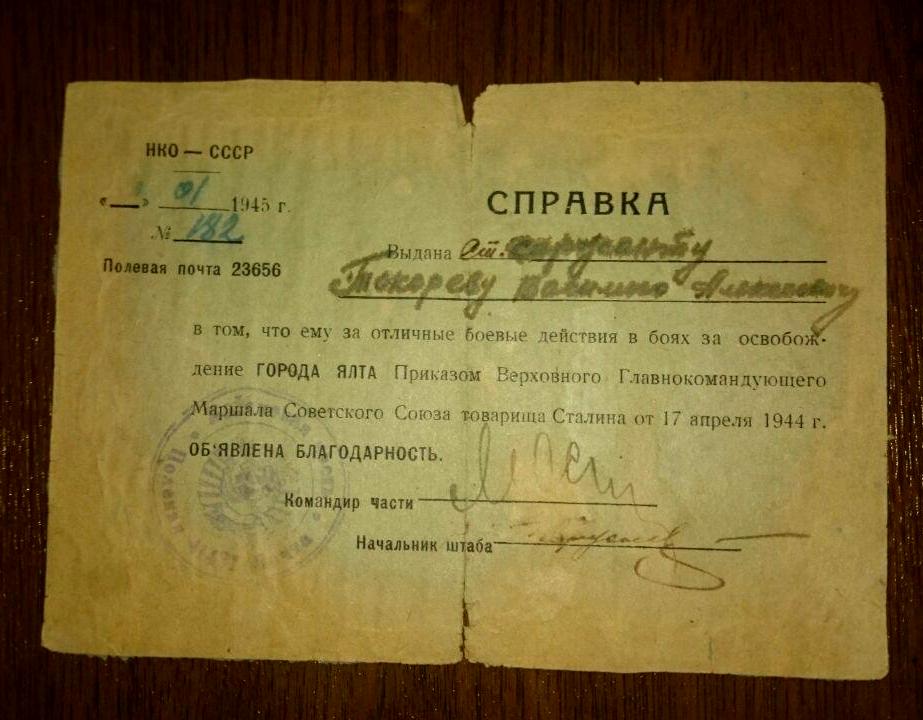 НКО — СССР
« » 01 1945 г.
№ 182
Полевая почта 23656
СПРАВКА
Выдана Ст. сержанту
Токареву Василию Алексеевичу
в том, что ему за отличные боевые действия в боях за освобож-
дение ГОРОДА ЯЛТА Приказом Верховного Главнокомандующего
Маршала Советского Союза товарища Сталина от 17 апреля 1944 г.
ОБ'ЯВЛЕНА БЛАГОДАРНОСТЬ.
Командир части
Начальник штаба